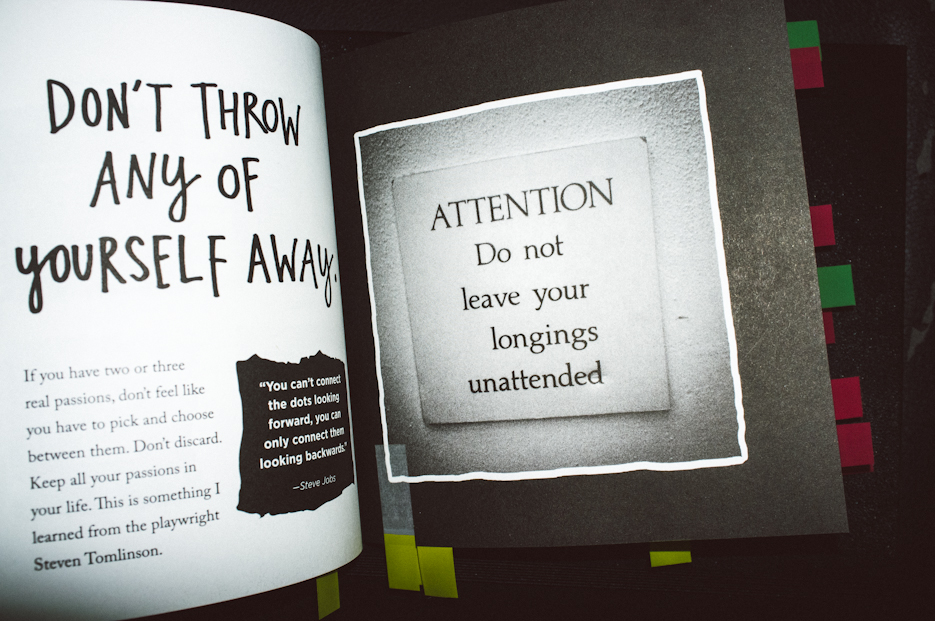 DON'T THROW
ANY OF
YOURSELF AWAY.
If you have two or three
real passions, don't feel like
you have to pick and choose
between them. Don't discard.
Keep all your passions in
your life. This is something I
learned from the playwright
Steven Tomlinson.
"You can't connect
the dots looking
forward, you can
only connect them
looking backwards."
—Steve Jobs
ATTENTION
Do not
leave your
longings
unattended